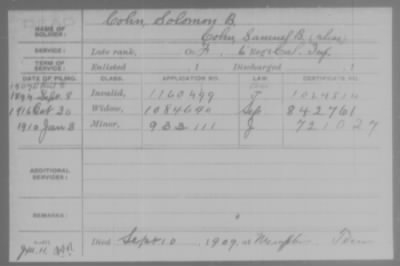 Cohn, Solomon B.
NAME OF SOLDIER:
Cohn, Samuel B. (alias)
SERVICE: Late rank, Co. F, 6 Reg't Cal. Inf.
TERM OF SERVICE: Enlisted , 1 Discharged , 1
DATE OF FILING. CLASS. APPLICATION NO. LAW. CERTIFICATE NO.
Sept. 8 Invalid, 1160499
1916 Oct 30 Widow, 1084690 842761
1910 Jan 3 Minor, 932111 721027
ADDITIONAL SERVICES:
REMARKS:
Died Sept 10 1909, at Memphis Tenn